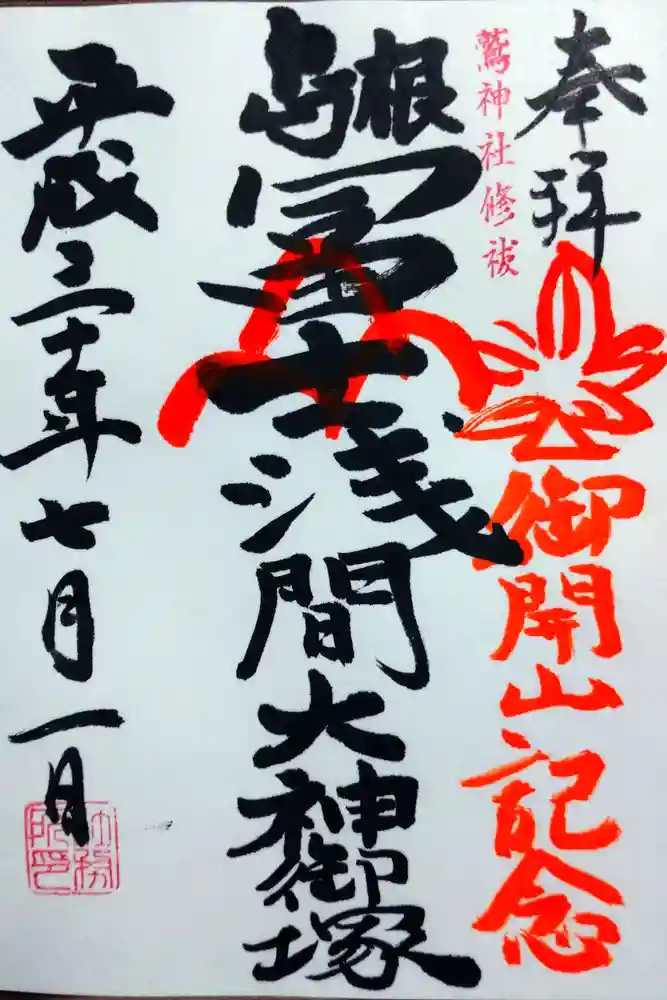 奉拝
御開山記念
鷲神社修祓
島根冨士浅間大神御塚
平成三十年七月一日
社務所印